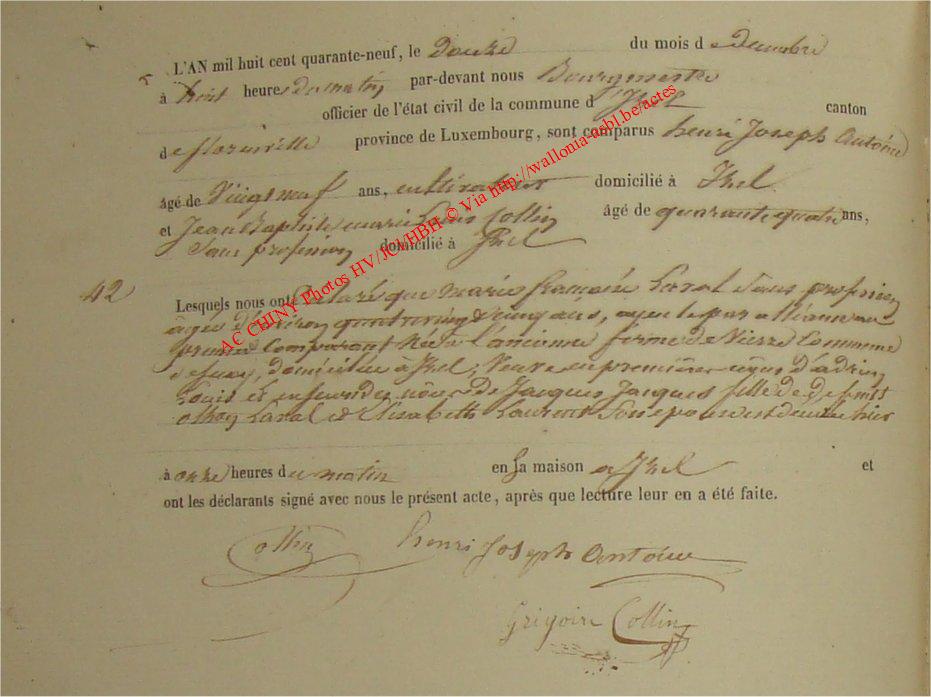 L'AN mil huit cent quarante-neuf, le Douze du mois d e Decembre
à huit heures du matin par-devant nous Bourgmestre
officier de l'état civil de la commune d'Izel canton
de florenville province de Luxembourg, sont comparus henri Joseph Antoine
âgé de Vingt neuf ans, cultivateur domicilié à Izel
et Jean Baptiste marie Louis Collin âgé de quarante quatre ans,
Sans profession domicilié à Izel
42
Lesquels nous ont Déclaré que marie françoise Laval Sans profession
âgée d'environ quatrevingt ans, alliance au
premier Comparant Née à l'ancienne forme de Vierre Commune
de domiciliée à Izel, Veuve en premières nôces d'adrien
Louis et en de nôces de Jacques Jacques fille de défunts
Laval et Elisabeth Laurent Son epouse est décédée hier
à onze heures du matin en Sa maison a Izel et
ont les déclarants signé avec nous le présent acte, après que lecture leur en a été faite.
Collin henri Joseph Antoine
Grégoire Collin
AC CHINY Photos HV/JCI/HBH © Via http://wallonia-asbl.be/actes